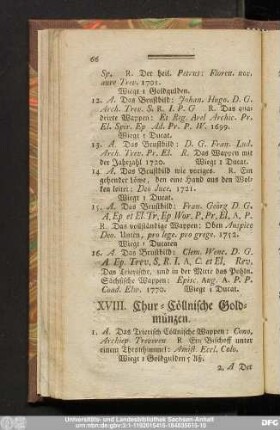 66
Sp. R. Der heil. Petrus: Floren. nov.
auro Trev. 1701.
Wiegt 1 Goldgulden.
12. A. Das Brustbild: Johan. Hugo. D. G.
Arch. Trev. S. R. I. P. G R. Das qua-
drirte Wappen: Et Reg. Arel Archic. Pr.
El. Spir. Ep Ad. Pr. P. W. 1699.
Wiegt 1 Ducat.
13. A. Das Brustbild: D. G. Fran. Lud.
Arch. Trev. Pr. El. R. Das Wappen mit
der Jahrzahl 1720. Wiegt 1 Ducat.
14. A. Das Brustbild wie voriges. R. Ein
stehender Löwe, den eine Hand aus den Wol-
ken leitet: Dos Duce, 1721.
Wiegt 1 Ducat.
15. A. Das Brustbild: Fran. Georg D. G.
A, Ep et El. Tr, Ep Wor. P, Pr, El, A, P.
R. Das vollständige Wappen: Oben Auspice
Deo. Unten, pro lege, pro grege. 1752.
Wiegt 1 Ducaten
16. A. Das Brustbild: Clem. Wenc. D. G.
A Ep. Trev. S, R, I. A, C, et El, Rev.
Das Trierische, und in der Mitte das Pohln.
Sächsische Wappen: Episc. Aug. A. P. P.
Coad. Elv. 1770. Wiegt 1 Ducat.
XVIII. Chur-Cöllnische Gold-
münzen.
1. A. Das Triersch Cöllnische Wappen: Cono,
Archiep. Treveren R Ein Bischoff unter
einem Thronhimmel: Amist. Eccl. Colo.
Wiegt 1 Goldgulden 7 Aß.
2. A Der
Universitäts- und Landesbibliothek Sachsen-Anhalt
DFG